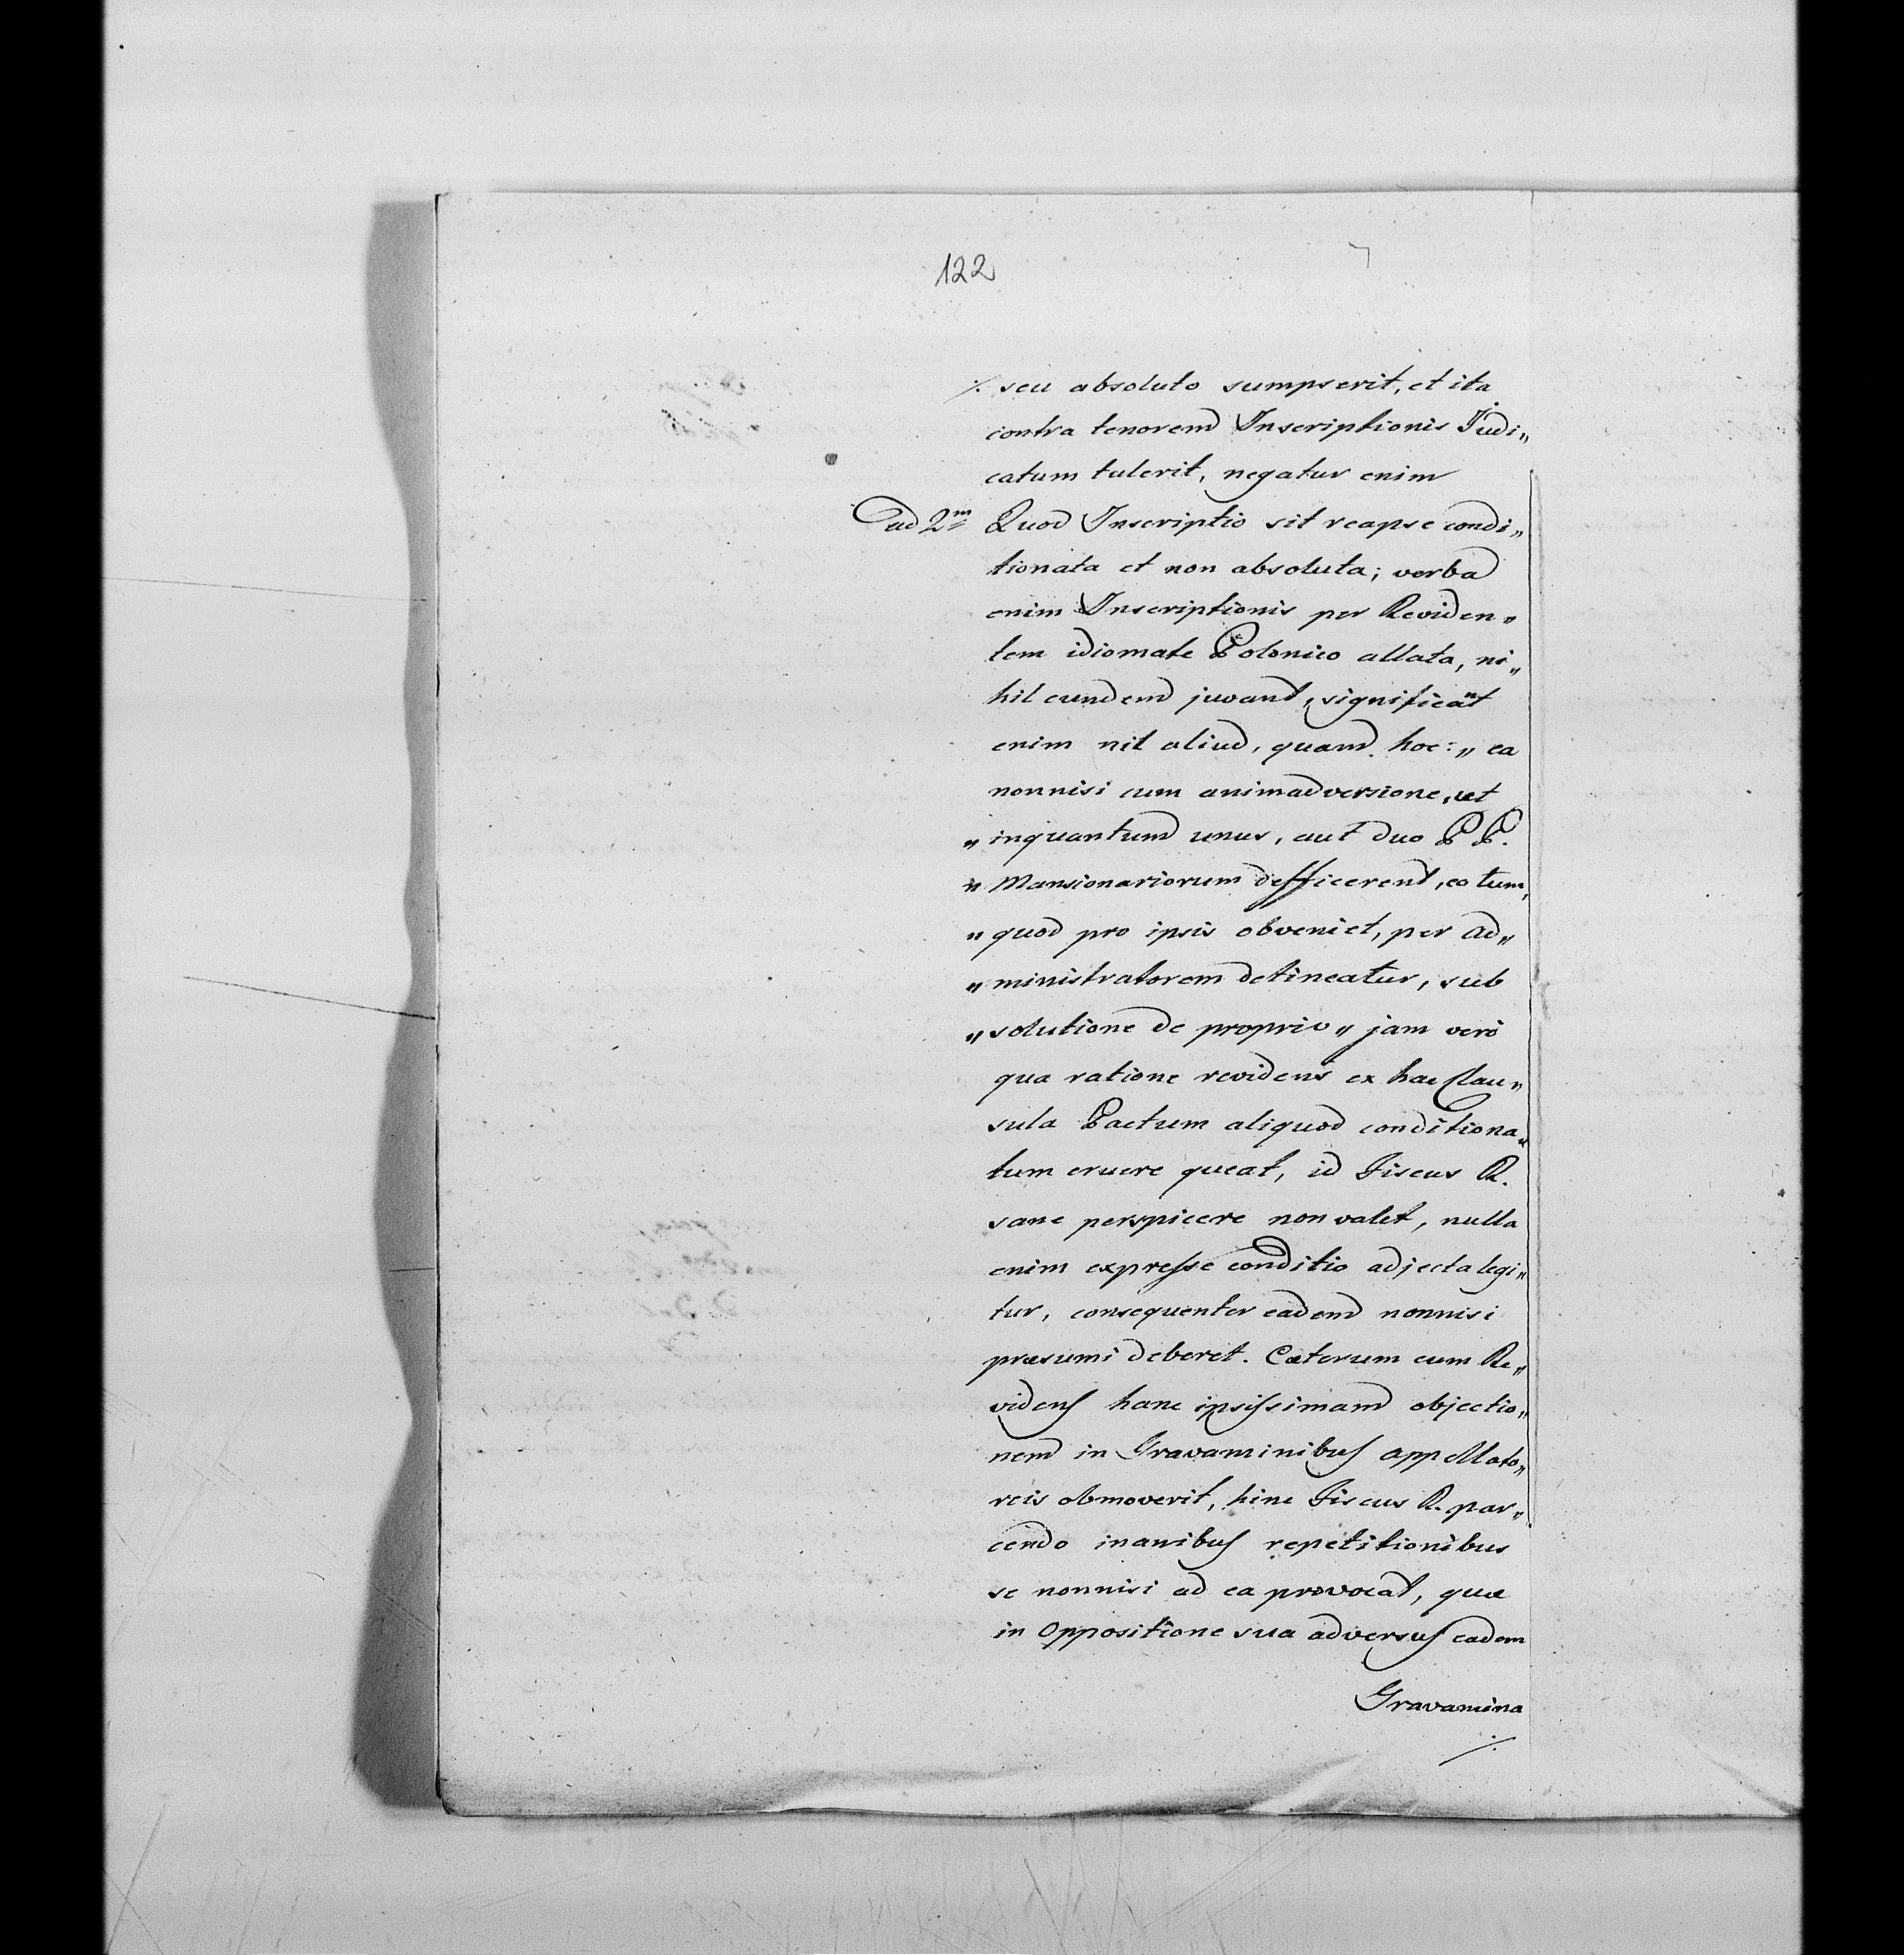 122
⁒ seu absoluto sumpserit, et ita
contra tenorem Inscriptionis Judi„
catum tulerit, negatur enim
ad 2m Quod Inscriptio sit reapse condi„
tionata et non absoluta; verba
enim Inscriptionis per Reviden„
tem idiomate Polonico allata, ni„
hil eundem juvant, significant
enim nil aliud, quam hoc: „ ea
nonnisi cum animadversione, ut
„ inquantum unus, aut duo PP.
„ Mansionariorum defficerent, eo tum,
„ quod pro ipsis obveniet, per ad„
„ ministratorem detineatur, sub
„ solutione de proprio „ jam vero
qua ratione revidens ex hac Clau„
sula Pactum aliquod conditiona„
tum eruere queat, id Fiscus R.
sane perspicere non valet, nulla
enim expresse conditio adjecta legi„
tur, consequenter eadem nonnisi
præsumi deberet. Cæterum cum Re„
videns hanc ipsissimam objectio„
nem in Gravaminibus appellato„
reis obmoverit, hinc Fiscus R. par„
cendo inanibus repetitionibus
se nonnisi ad ea provocat, quæ
in Oppositione sua adversus eadem
Gravamina
⁒